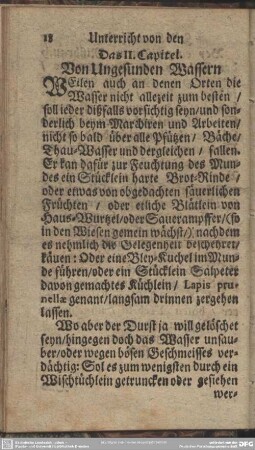 18 Unterricht von den
Das II. Capitel.
Von Ungesunden Wassern
WEilen auch an denen Orten die
Wasser nicht allezeit zum besten /
soll ieder dißfalls vorsichtig seyn / und son-
derlich beym Marchiren und Arbeiten /
nicht so bald über alle Pfützen / Bäche /
Thau-Wasser und dergleichen / fallen.
Er kan dafür zur Feuchtung des Mun-
des ein Stücklein harte Brot-Rinde /
oder etwas von obgedachten säuerlichen
Früchten / oder etliche Blätlein von
Haus-Wurtzel / oder Sauerampffer / (so
in den Wiesen gemein wächst /) nachdem
es nehmlich die Gelegenheit bescheyret /
käuen: Oder eine Bley-Kuchel im Mun-
de führen / oder ein Stücklein Salpeter
davon gemachtes Küchlein / Lapis pru-
nellæ genant / langsam drinnen zergehen
lassen.
Wo aber der Durst ja will gelöschet
seyn / hingegen doch das Wasser unsau-
ber / oder wegen bösen Geschmeisses ver-
dächtig: Sol es zum wenigsten durch ein
Wischtüchlein getruncken oder gesiehen
wer-